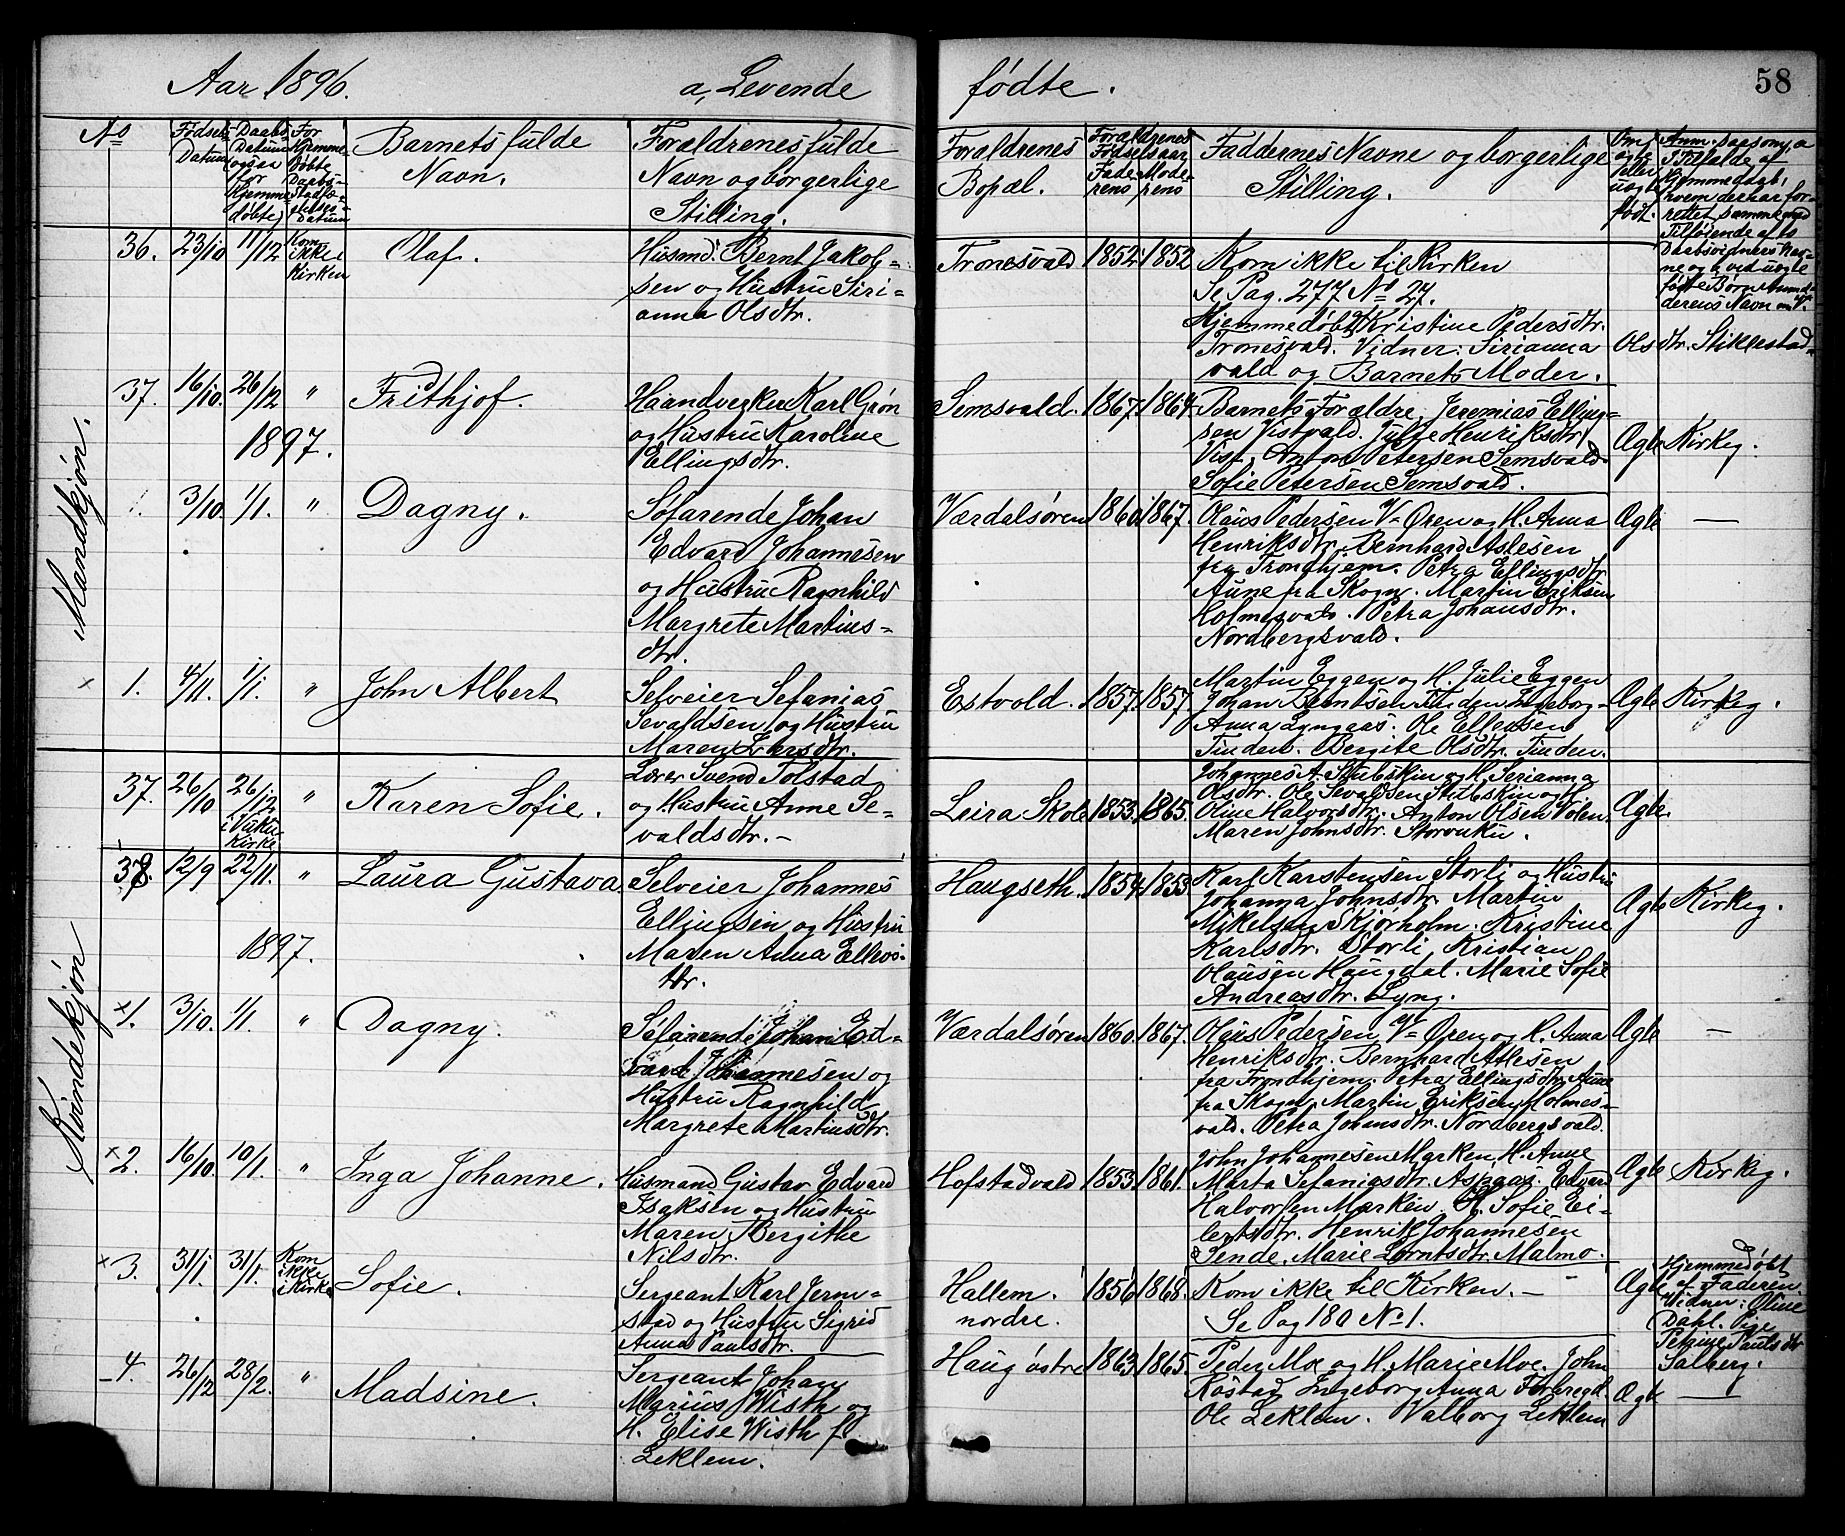 Aar 1896. a, Levende fødte. 58
No
Fødsels Datum
Daabs Datum ogsaa for Hjemme døbte
For Hjemme Døbte Daabs- Stadfæ- stelses- Datum
Barnets fulde
Navn.
Forældrenes fulde
Navn og borgerlige
Stilling.
Forældrenes
Bopæl.
Forældrenes
Fødselsaar
Fade- rens Mode- rens
Faddernes Navne og borgerlige
Stilling.
Mandkjøn.
36. 23/10 11/12 Kom ikke i Kirken
Olaf.
Husmd. Bernt Jakob-
sen og Hustru Siri-
anna Olsdtr.
Tronesvald 1852. 1852
Kom ikke til Kirken
Se Pag. 277 No 27.
Hjemmedøbt Kristine Pedersdtr.
Tronesvald. Vidner: Sirianna Olsdtr. Stiklestad-
vald og Barnets Moder.
37. 16/10. 26/12 "
Frithjof.
Haandverker Karl Grøn
og Hustru Karoline
Ellingsdtr.
Semsvald. 1867. 1864.
Barnets Forældre, Jeremias Elling-
sen Vistvald. Julie Henriksdtr.
Vist, Anton Petersen Semsvald.
Sofie Petersen Semsvald.
Ægte Kirkeg.
1897.
1. 3/10. 1/1. "
Dagny.
Søfarende Johan
Edvard Johannesen
og Hustru Ragnhild
Margrete Martins-
dtr.
Værdalsøren 1860. 1867.
Olaus Pedersen V= Øren og H. Anna
Henriksdtr. Bernhard Aslesen
fra Trondhjem. Petra Ellingsdtr
Aune fra Skogn. Martin Eriksen
Holmesvald. Petra Johansdtr.
Nordbergsvald.
Ægte —
x 1. 4/11. 1/1. "
John Albert
Selveier Sefanias
Sevaldsen og Hustru
Maren Larsdtr.
Estvold. 1857. 1857
Martin Eggen og H. Julie Eggen
Johan Berntsen Tinden Ingeborg
Anna Lyngaas. Ole Ellevsen
Tinden. Bergite Olsdtr. Tinden.
Ægte Kirkeg.
Kvindekjøn
37. 26/10 26/12 i Vuku Kirke "
Karen Sofie.
Lærer Svend Tolstad
og Hustru Anne Se-
valdsdtr. –
Leira Skole 1853. 1865.
Johannes A. Stubskin og H. Serianna
Olsdtr. Ole Sevaldsen Stubskin og H.
Oline Halvorsdtr. Anton Olsen Volen.
Maren Johnsdtr. Storvuku.
Ægte.
38. 12/9 22/11. "
Laura Gustava.
Selveier Johannes
Ellingsen og Hustru
Maren Anna Ellevs-
dtr.
Haugseth. 1854. 1853
Karl Karstensen Storli og Hustru
Johanna Johnsdtr. Martin
Mikelsen Skjørholm. Kristine
Karlsdtr. Storli Kristian
Olausen Haugdal. Marie Sofie
Andreasdtr. Lyng.
Ægte Kirkeg.
1897.
x 1. 3/10. 1/1. "
Dagny.
Søfarende Johan Ed-
vard Johannesen og
Hustru Ragnhild
Margrete Martinsdtr.
Værdalsøren 1860. 1867.
Olaus Pedersen V= Øren og H. Anna
Henriksdtr. Bernhard Aslesen
fra Trondhjem. Petra Ellingsdtr. Aune
fra Skogn, Martin Eriksen Holmes-
vald. Petra Johansdtr. Nordbergsvald.
Ægte –
x 2. 16/10. 10/1. "
Inga Johanne.
Husmand Gustav Edvard
Isaksen og Hustru
Maren Bergithe
Nilsdtr.
Hofstadvald 1853. 1861.
John Johannesen Marken, H. Anne
Marta Sefaniasdtr. Aspaas. Edvard
Halvorsen Marken. H. Sofie Ei-
lertsdtr. Henrik Johannesen
Sende. Marie Lorntsdtr. Malmo.
Ægte Kirkeg.
x 3. 31/1. 31/1. Kom ikke i Kirke
Sofie.
Sergeant Karl Jerm-
stad og Hustru Sigrid
Anna Paulsdtr.
Hallem.
nordre.
1856 1868.
Kom ikke til Kirken. –
Se Pag 180 No 1.
Ægte
Hjemmedøbt
af Faderen.
Vidner: Oline
Dahl. Pige
Petrine Paulsdtr
Salberg.
4. 26/12 28/2. "
Madsine.
Sergeant Johan
Marius Wisth og
H. Elise Wisth f.
Leklem.
Haug østre 1863. 1865.
Peder Moe og H. Marie Moe. John
Røstad Ingeborg Anna Forbregd
Ole Leklem. Valborg Leklem
Ægte —